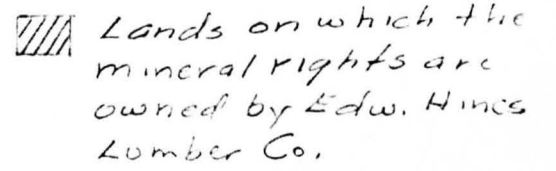 Lands on which the
mineral rights are
owned by Edw. Hines
Lumber Co.